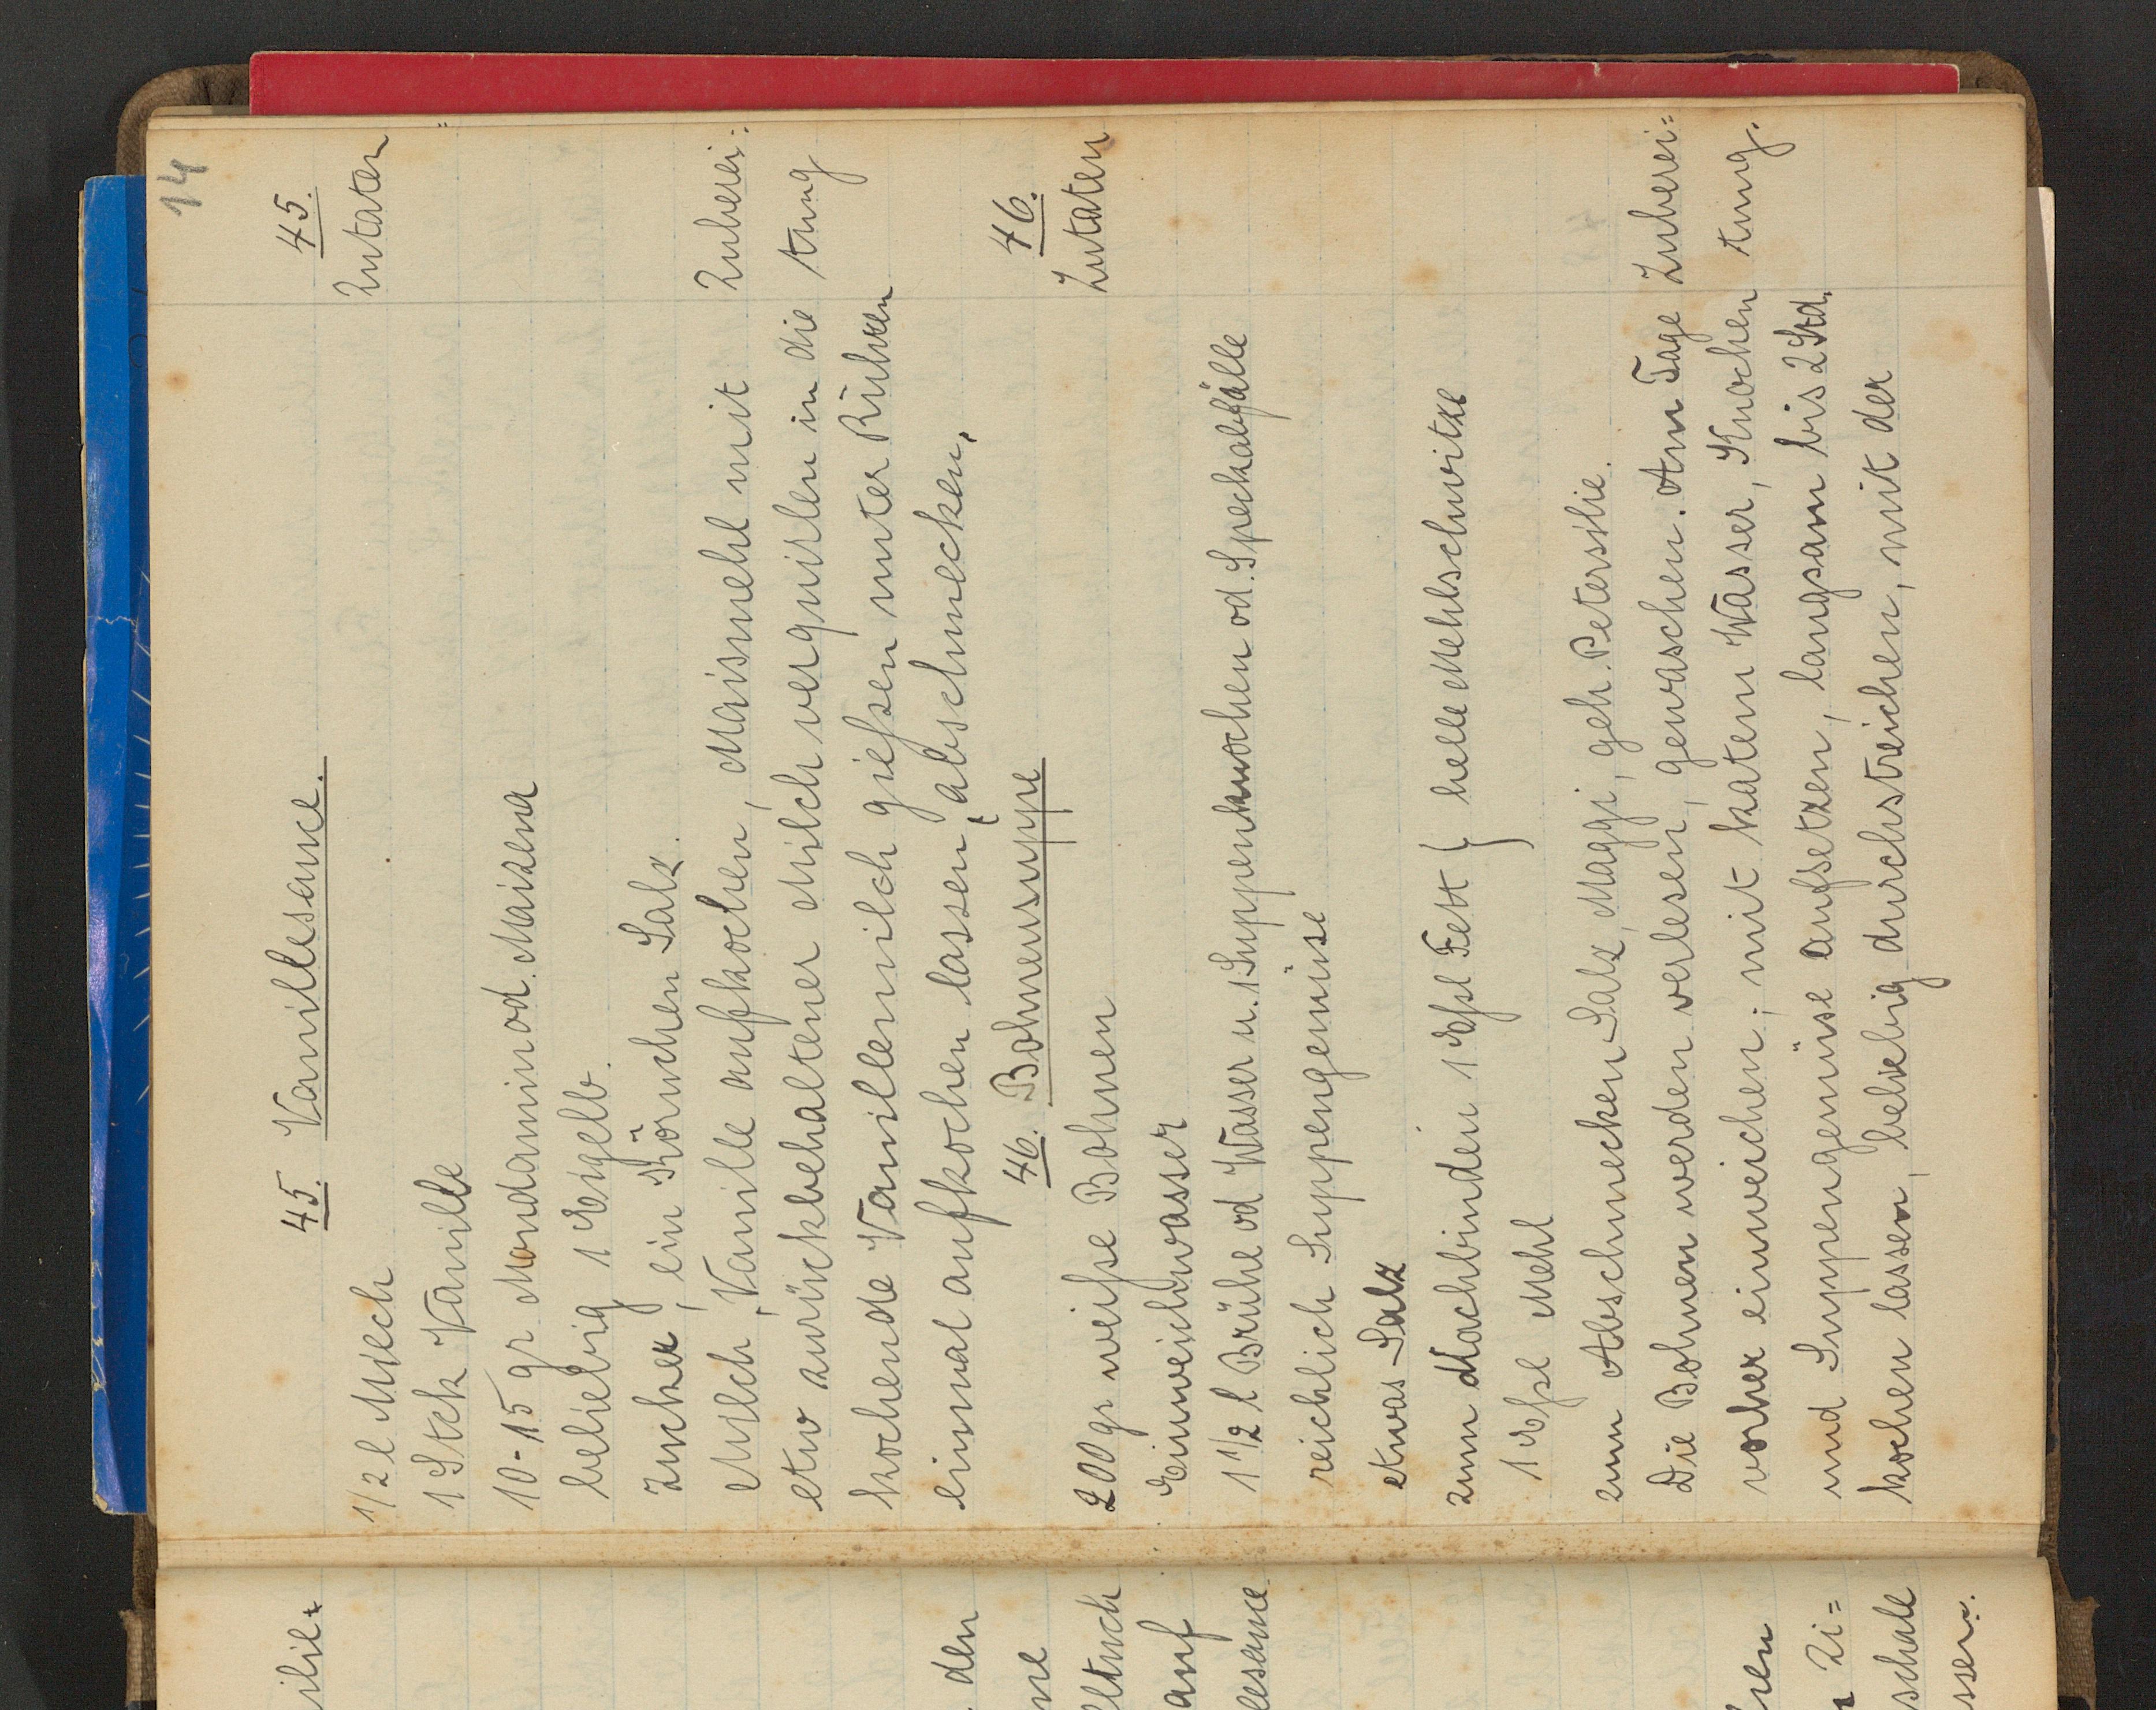 14
45. Vanillesauce. 45.
1/2 l Milch Zutaten
1 Stck Vanille
10-15 gr Mondamin od. Maizena
beliebig 1 Eigelb.
Zucker, ein Körnchen Salz.
Milch, Vanille aufkochen, Maismehl mit Zuberei=
etw zurückbehaltener Milch verquirlen in die tung
kochende Vanillemilch gießen unter Rühren
einmal aufkochen lassen, abschmecken.
46. Bohnensuppe 46.
200 gr weiße Bohnen Zutaten
Einweichwasser
1 1/2 l Brühe od Wasser u. 1 Suppenknochen od. Speckabfälle
reichlich Suppengemüse
etwas Salz
zum Nachbinden 1 Eßl Fett } helle Mehlschwitze
1 Eßl Mehl
zum Abschmecken Salz, Maggi, geh. Petersilie.
Die Bohnen werden verlesen, gewaschen. Am Tage Zuberei=
vorher einweichen; mit kaltem Wasser, Knochen tung.
und Suppengemüse aufsetzen, langsam bis 2 Std.
kochen lassen, beliebig durchstreichen, mit der
den
ne
auf
lesauce
Zi=
schale
ssen.